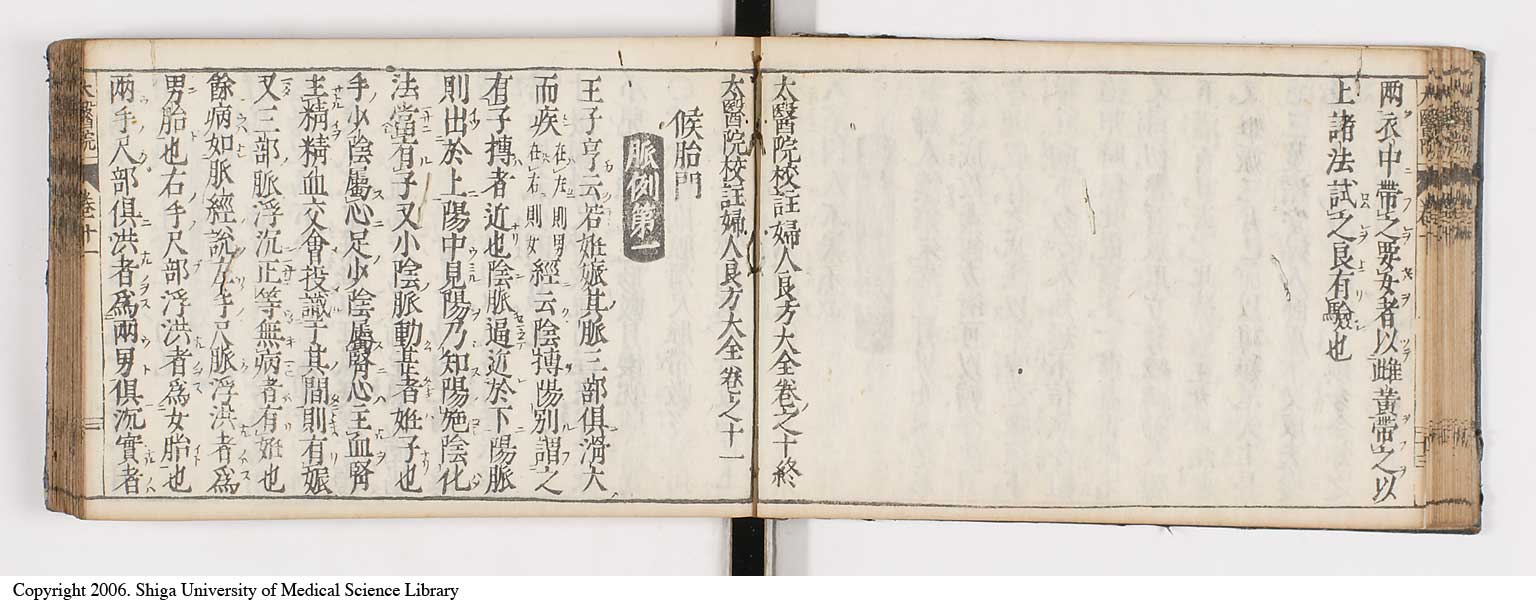 兩衣中帶之要女者以雌黃帶之以
上諸法試之良有驗也
太醫院校註婦人良方大全卷之十終
太醫院校註婦人良方大全卷之十一
候胎門
脈例第一
王子亨云若姙娠其脈三部俱滑大
而疾在左則男在右則女經云陰搏陽別謂之
有子搏者近也陰脈逼近於下陽脈
則出於上陽中見陽乃知陽施陰化
法當有子又少陰脈動甚者姙子也
手少陰屬心足少陰屬腎心主血腎
主精精血交會投識于其間則有娠
又三部脈浮沉正等無病者有姙也
餘病如脈經說左手尺脈浮洪者爲
男胎也右手尺部浮洪者爲女胎也
兩手尺部俱洪者爲兩男俱沉實者
Copyright 2006. Shiga University of Medical Science Library